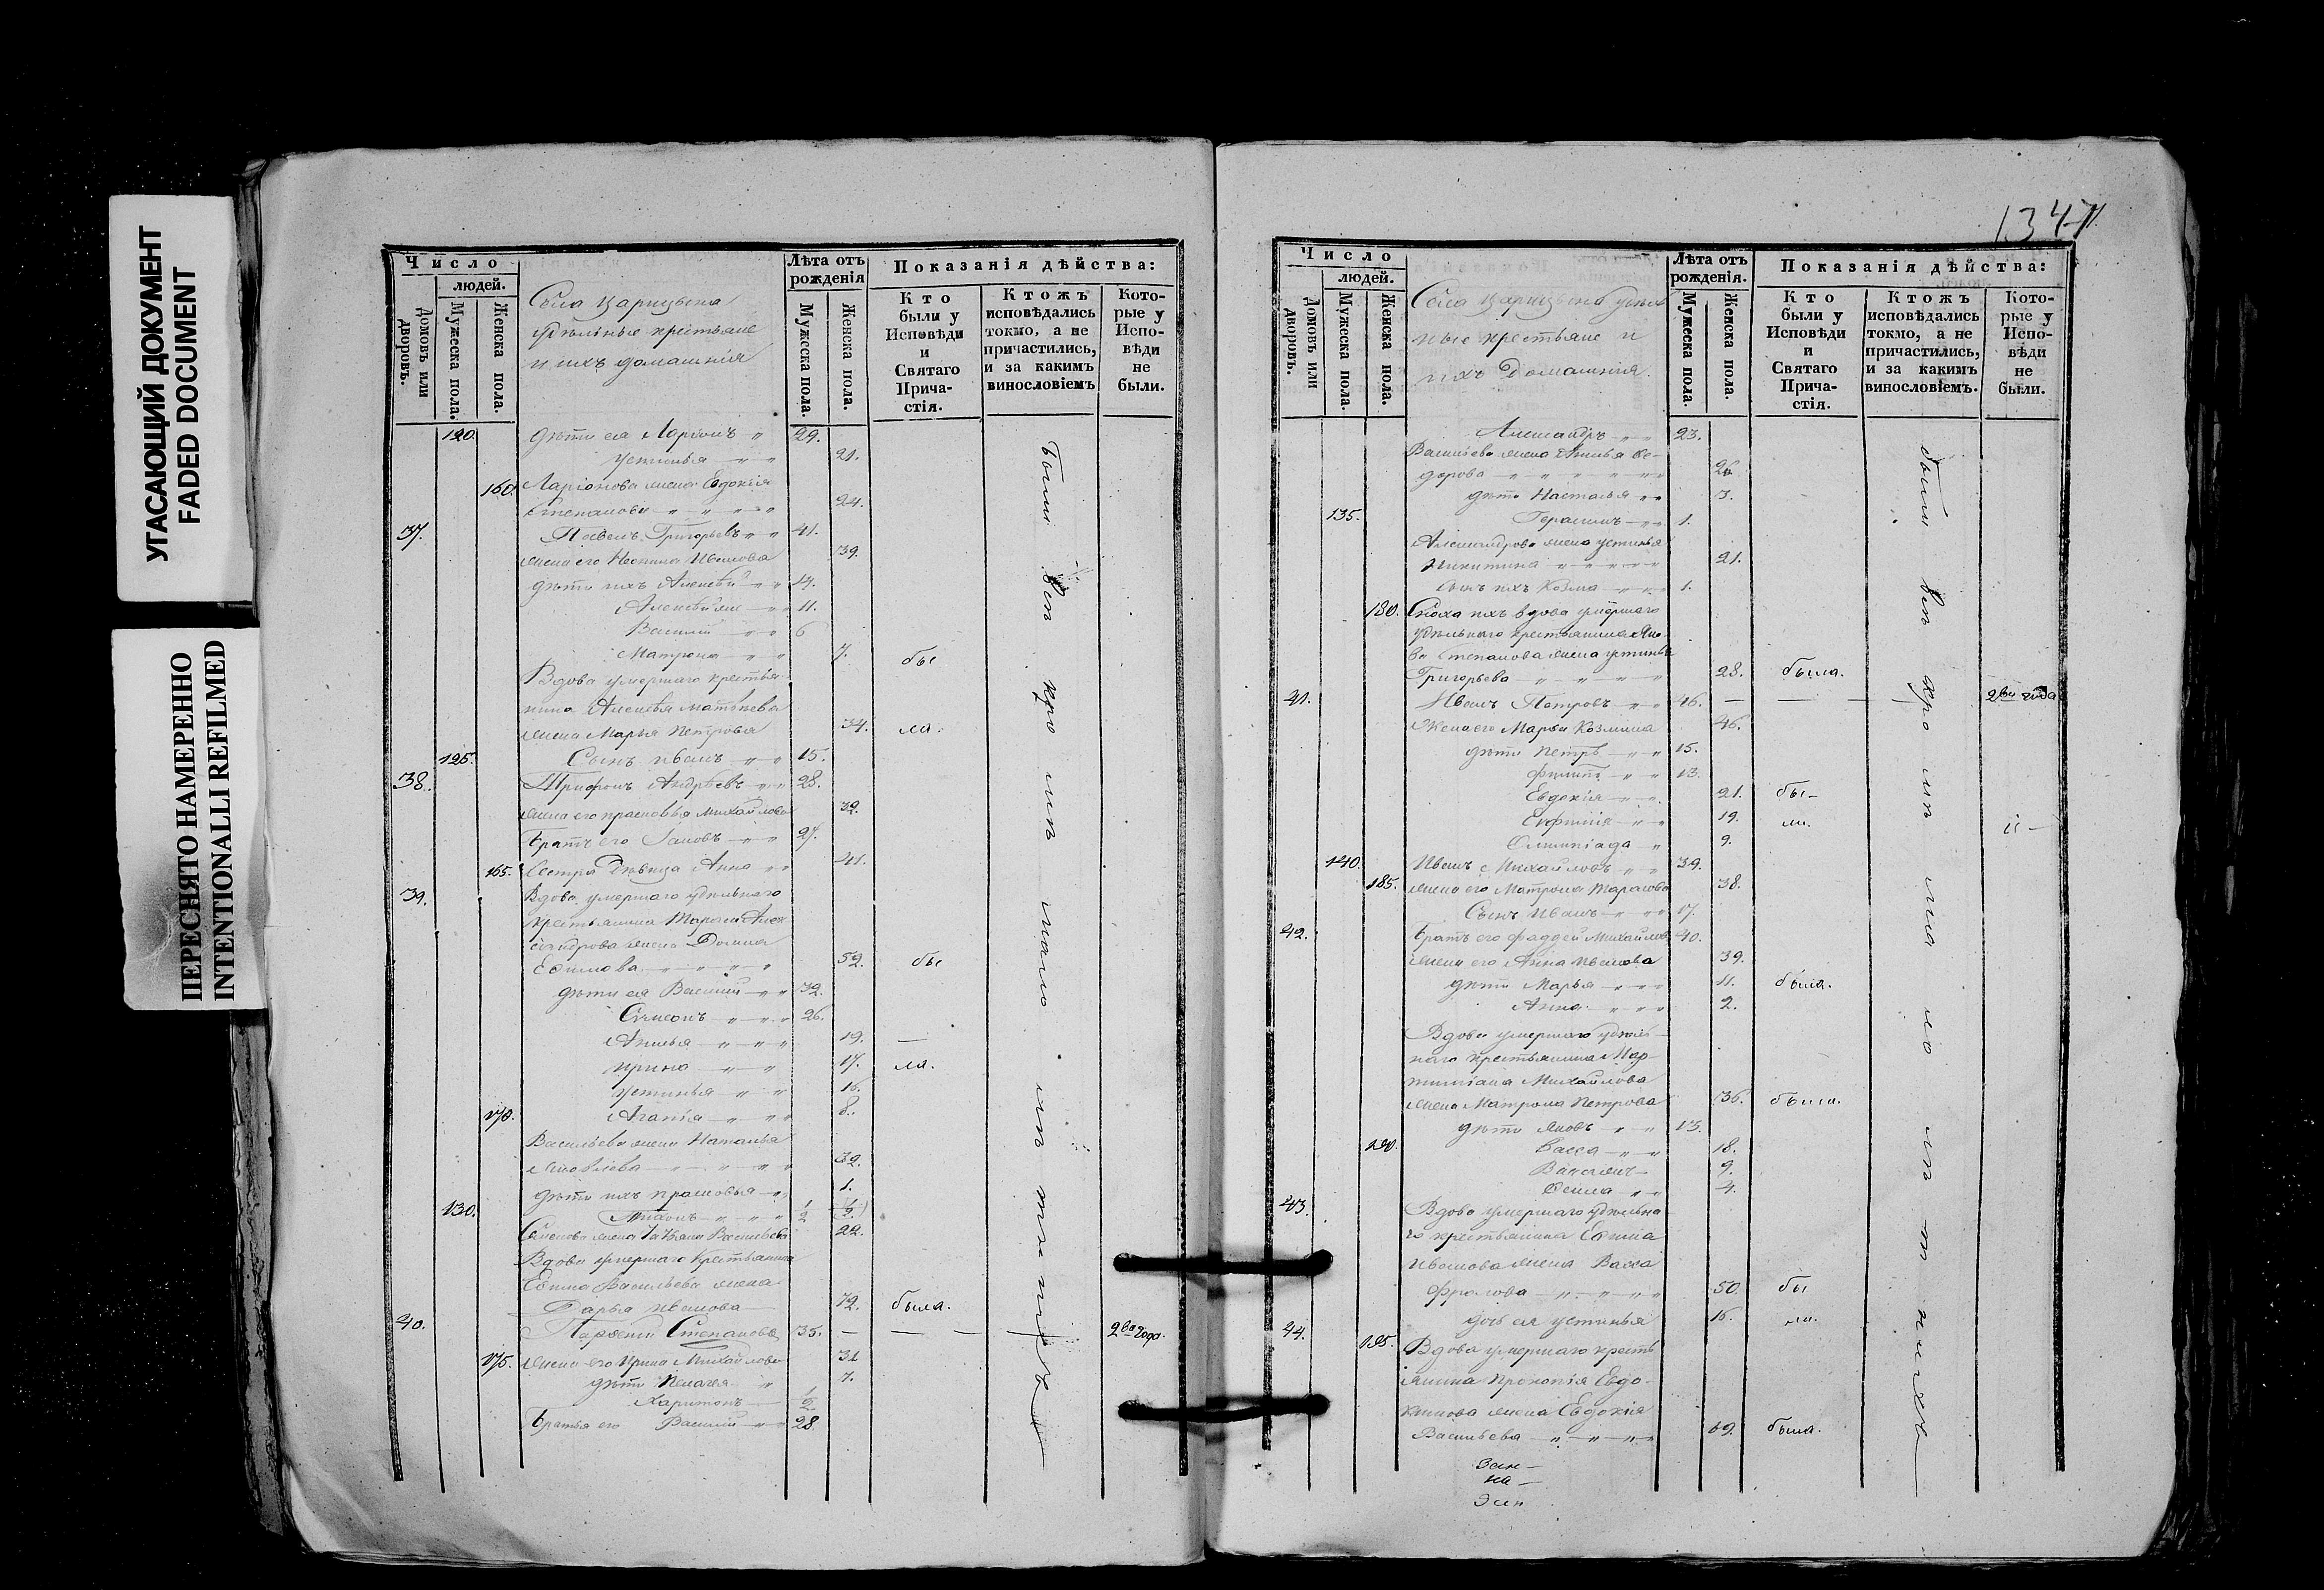 УГАСАЮЩИЙ ДОКУМЕНТ
FADED DOCUMENT
ПЕРЕСНЯТО НАМЕРЕННО
INTENTIONALLI REFILMED
Число
людей.
Домовъ или дворовъ.
Мужеска пола.
Женска пола.
Села Царицына
удѣльные крестьяне
и ихъ домашнія
Лѣта отъ рожденія
Мужеска пола.
Женска пола.
Показанія дѣйства:
Кто были у Исповѣди и Святаго Прича-стія.
Ктожъ исповѣдались токмо, а не причастились, и за какимъ винословіемъ
Кото-рые у Испо-вѣди не были.
120. дѣти ея Ларіонъ 29.
Устинья 21.
160. Ларіонова жена Евдокія
Степанова 24.
37. Павелъ Григорьевъ 41.
жена его Ивановa 39.
дѣти ихъ Алексѣй 14.
Алексѣй же 11.
Василій 6
Матрона 7. бы
Вдова умершаго крестья-
нина Алексѣя Матвѣева
жена Марья Петрова 34. ла.
125. Сынъ Иванъ 15.
38. Трифонъ Андреевъ 28.
жена его Прасковья Михайлова 32.
Братъ его Іаковъ 27.
165. Сестра Дѣвица Анна 41.
39. Вдова умершаго удѣльнаго
крестьянина Тараса Алек-
сандрова жена Домна
Ефимова 52. бы
дѣти ея Василій 32.
Симеонъ 26.
Акилья 19. —
Ирина 17. ла.
Устинья 16.
170. Агапія 8.
Васильева жена Наталья
Яковлева 32.
дѣти ихъ Прасковья 1.
130. 1/2
Семенова жена Татьяна Васильева 22.
Вдова умершаго Крестьянина
Ефима Васильева жена
Дарья Иванова 72. была.
40. Парфенъ Степановъ 35. — — — 2ва года.
175. жена его Ирина Михайлова 31
дѣти Пелагея 7.
Харитонъ 1/2
Братья его Василій 28.
Были всѣ кро мѣ мало лѣ тныхъ
1347.
Число
людей.
Домовъ или дворовъ.
Мужеска пола.
Женска пола.
Села Царицына удѣль
ные крестьяне и
ихъ Домашнія.
Лѣта отъ рожденія.
Мужеска пола.
Женска пола.
Показанія дѣйства:
Кто были у Исповѣди и Святаго Прича-стія.
Ктожъ исповѣдались токмо, а не причастились, и за какимъ винословіемъ.
Кото-рые у Испо-вѣди не были.
Александръ 23.
Васильева жена Акилья Фе-
дорова 26.
дѣти Настасья 3.
135. Герасимъ 1.
Александрова жена Устинья
Никитина 21.
Сынъ ихъ Козма 1.
180. Сноха ихъ вдова умершаго
удѣльнаго крестьянина Яко-
ва Степанова жена Устинья
Григорьева 28. была.
41. Иванъ Петровъ 46. — — — 2ва года
Жена его Марья Козмина 46.
дѣти Петръ 15.
Филипъ 13.
Евдокія 21. бы-
Евфимія 19. ли.
Олимпіада 9.
140. Иванъ Михайловъ 39.
185. жена его Матрона Тарасова 38.
Сынъ Иванъ 17.
42. Братъ его Фаддей Михайловъ 40.
жена его Анна Иванова 39.
дѣти Марья 11. была.
Анна 2.
Вдова умершаго удѣль-
наго крестьянина Мар-
тиніана Михайлова
жена Матрона Петрова 36. была.
дѣти Яковъ 13.
190. Васса 18.
9.
4.
43. Вдова умершаго удѣльна
го крестьянина Ефима
Иванова жена Васса
Фролова 50. бы
дочь ея Устинья 16. ли.
44. 195. Вдова умершаго кресть
янина Прокопія Евдо-
кимова жена Евдокія
Васильева 69. была.
были всѣ кро мѣ ма ло лѣ т ныхъ